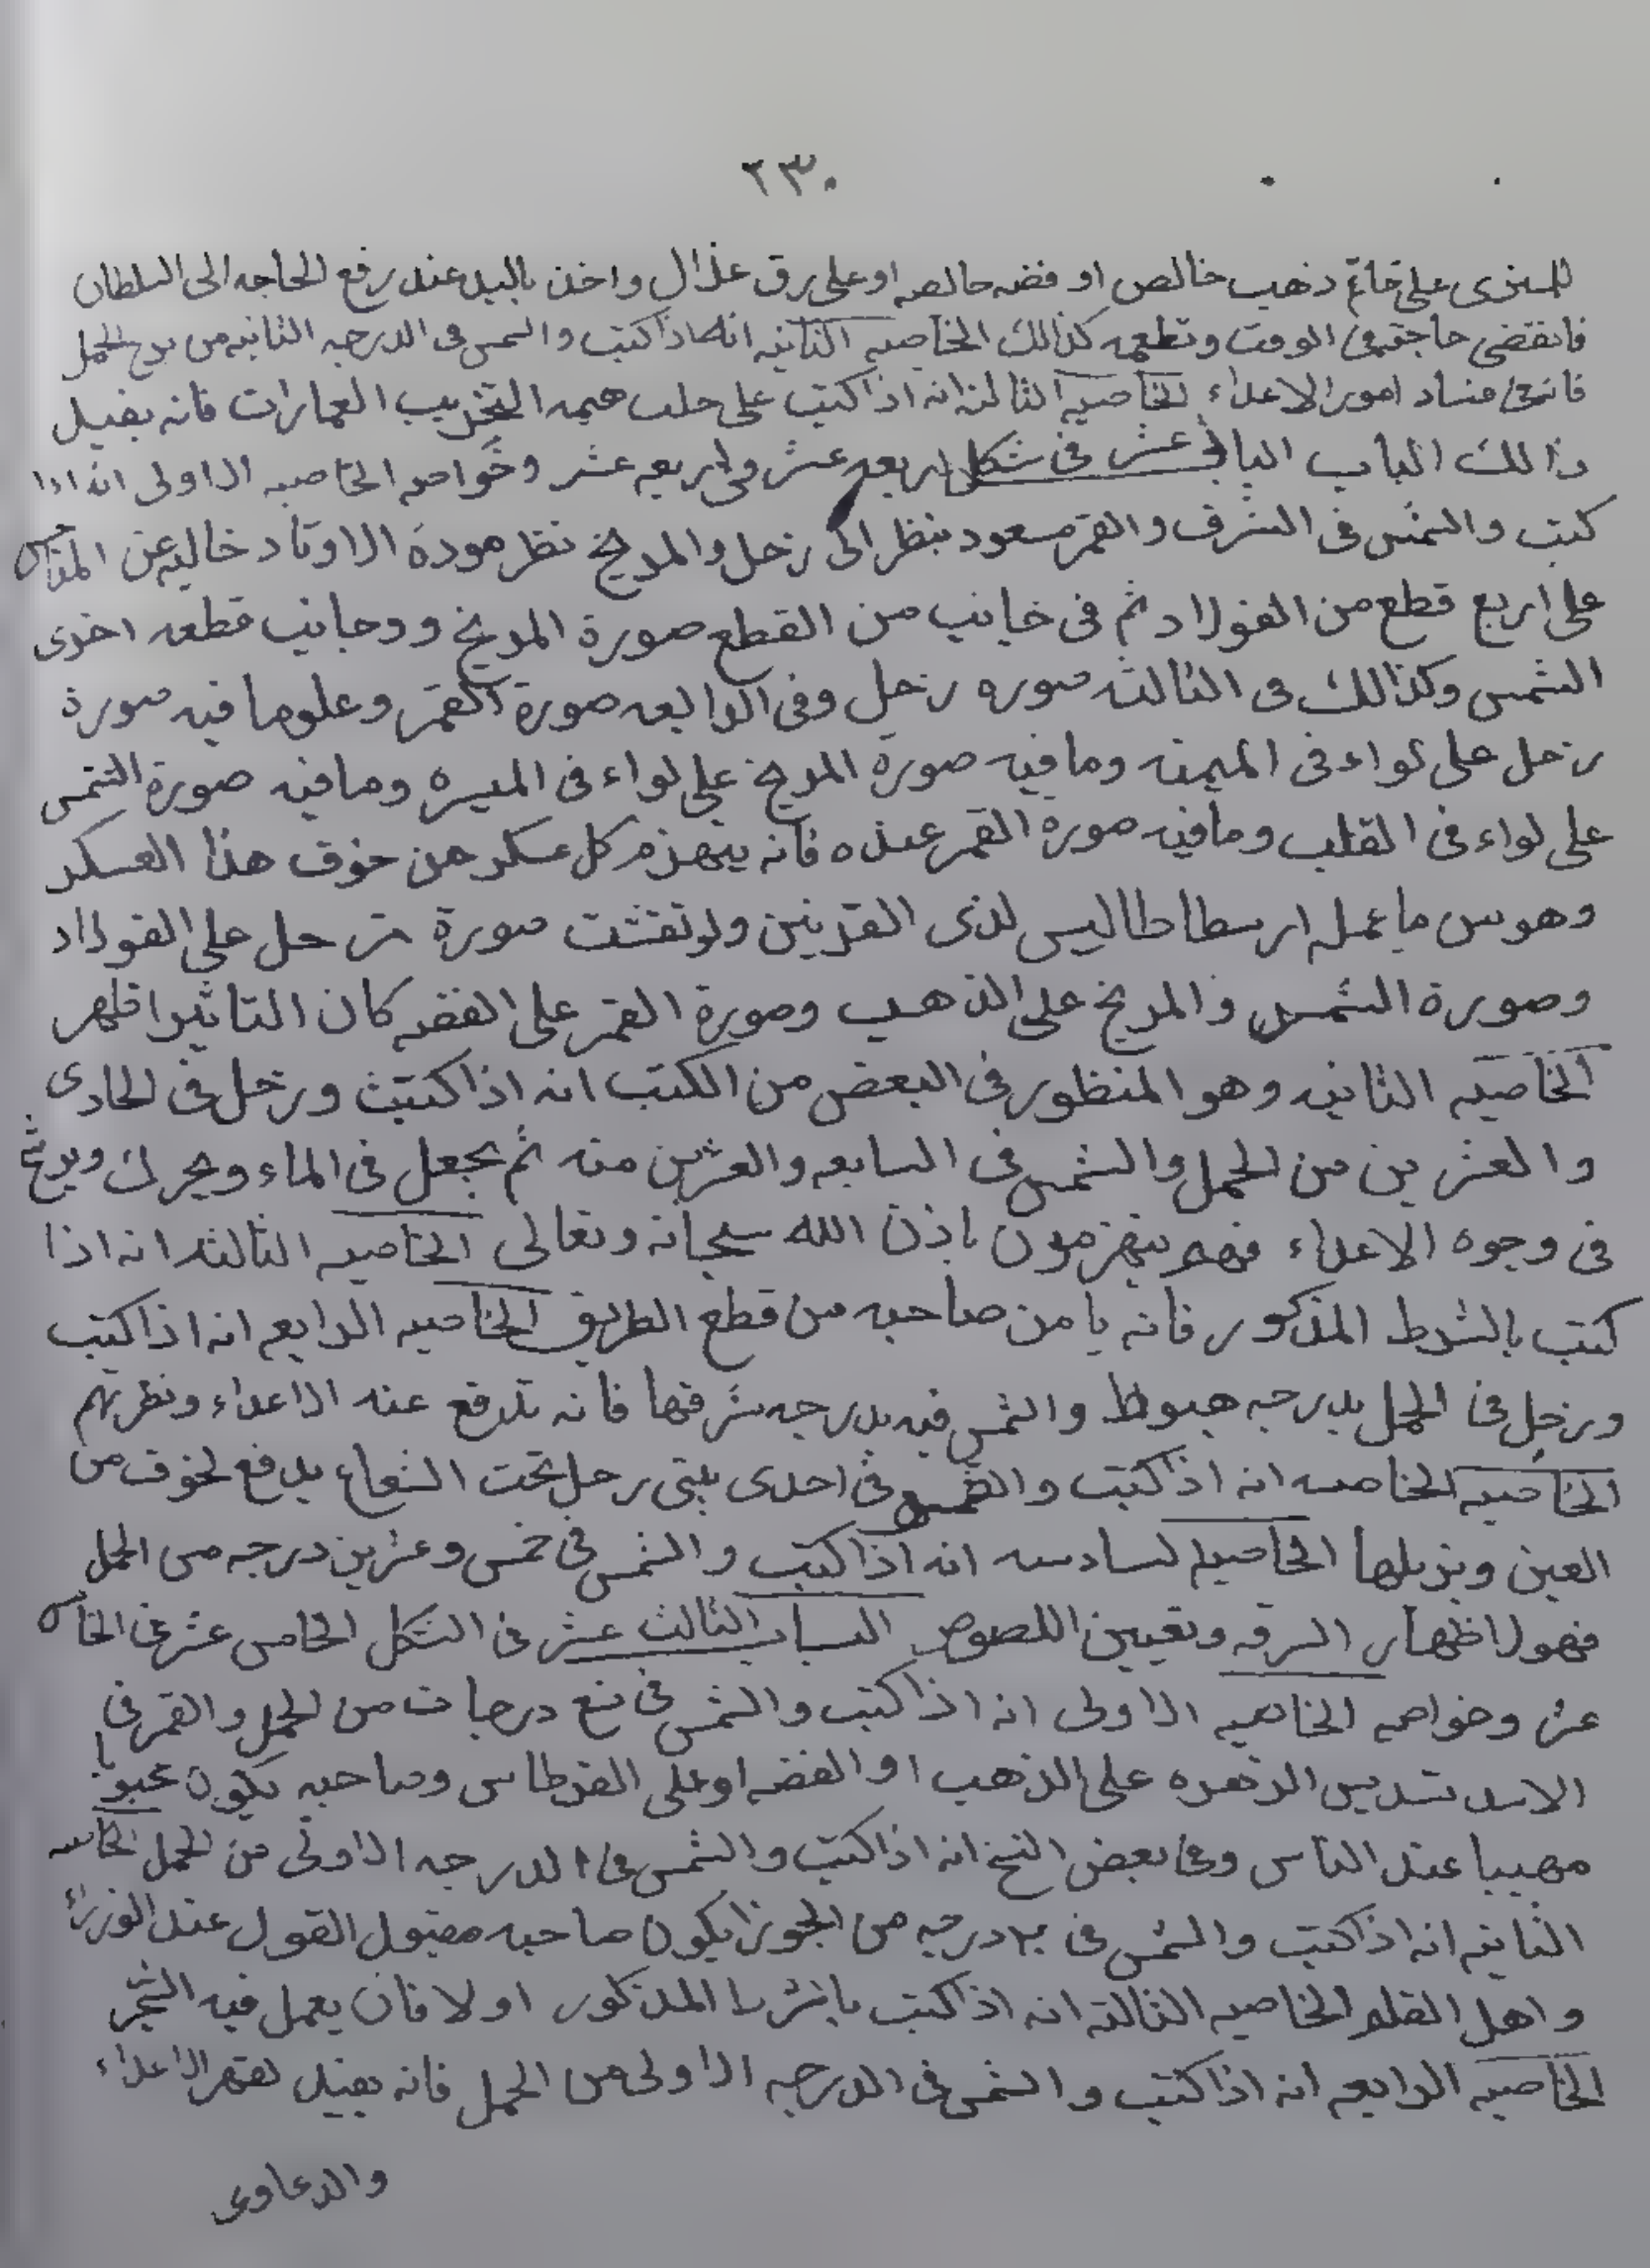 ٢٣٠
للمشترى على خاتم ذهب خالص او فضه خالصه او على رق غزال واخذ باليد عند رفع الحاجه الى السلطان
فانقضى حاجته فى الوقت وتطعمه كذالك الخاصيه الثانيه انه اذا كتب والشمس فى الدرجه الثانيه من برج الحمل
فانه فساد امور الاعداء الخاصيه الثالثه انه اذا كتب على جلد هيمه التخريب العمارات فانه يفيد
ذالك الباب الثانى عشر فى شكل اربعه عشر فى اربعه عشر وخواصه الخاصيه الاولى انه اذا
كتب والشمس فى الشرف والقمر مسعود ينظر الى زحل والمريخ نظر مودة الاوتاد خاليه عن
على اربع قطع من الفولاد ثم فى خانب من القطع صورة المريخ و وجانب قطعه اخرى
الشمس وكذالك فى الثالثه صوره زحل وفى الرابعه صورة القمر وعلوما فيه صورة
زحل على لواء فى الميمنه وما فيه صورة المريخ على لواء فى الميسره وما فيه صورة الشمس
على لواء فى القلب وما فيه صورة القمر عنده فانه ينهزم كل عسكر من خوف هذا العسكر
وهو من ما عمله ارسطاطاليس لذى القرنين ولو نقشت صورة زحل على الفولاد
وصورة الشمس والمريخ على الذهب وصورة القمر على الفضه كان التاثير اظهر
الخاصيه الثانيه وهو المنظور فى البعض من الكتب انه اذا كتبت وزحل فى الحادى
والعشرين من الحمل والشمس فى السابعه والعشرين منه ثم يجعل فى الماء ويحرك ويرش
فى وجوه الاعداء فهم ينهزمون باذن الله سبحانه وتعالى الخاصيه الثالثه انه اذا
كتب بالشرط المذكور فانه يامن صاحبه من قطع الطريق الخاصيه الرابعه انه اذا كتب
وزحل فى الحمل بدرجه هبوط والشمس فيه بدرجه شرفها فانه تدفع عنه الاعداء ونظرتهم
الخاصيه الخامسه انه اذا كتبت والشمس فى احدى بيتى زحل تحت الشعاع يدفع لخوف من
العين ويزيلها الخاصيه لسادسه انه اذا كتبت والشمس فى خمس وعشرين درجه من الحمل
فهو لاظهار السرقه وتعيين اللصوص الباب الثالث عشر فى الشكل الخامس عشر فى
عشر وخواصه الخاصيه الاولى انه اذا كتب والشمس فى تسع درجات من الحمل والقمر فى
الاسد تسديس الزهره على الذهب او الفضه او على القرطاس وصاحبه يكون محبوبا
مهيبا عند الناس وفى بعض النسخ انه اذا كتب والشمس فى الدرجه الاولى من الحمل الخاصيه
الثانيه انه اذا كتب والشمس فى درجه من الجوزا يكون صاحبه مقبول القول عند الوزراء
واهل القلم الخاصيه الثالثه انه اذا كتب بالشرط المذكور اولا فان يعمل فيه
الخاصيه الرابعه انه اذا كتب والشمس فى الدرجه الاولى من الحمل فانه يفيد لقهر الاعداء
والدعاوى